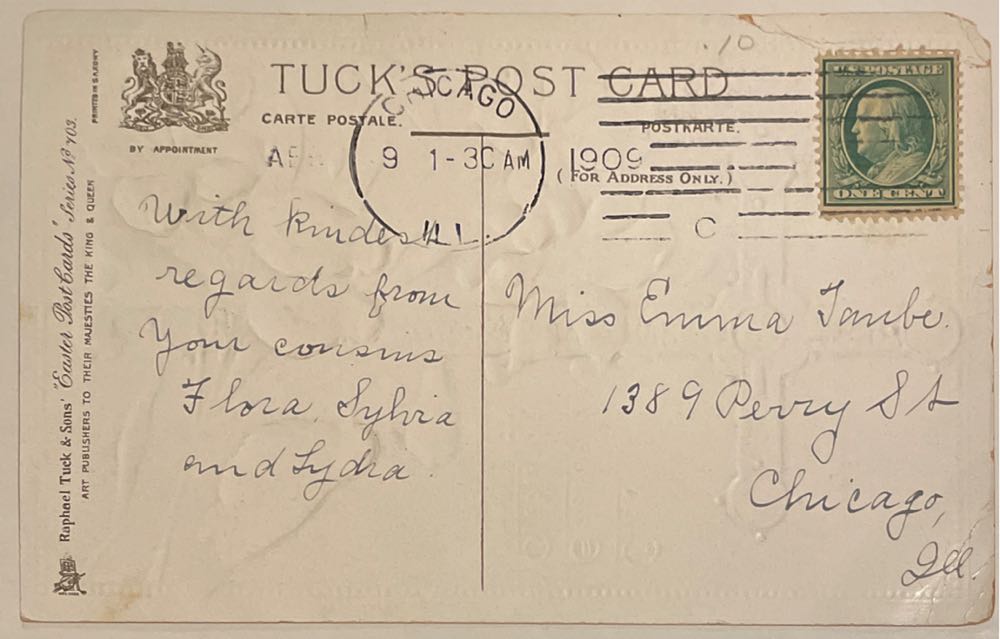 .10
TUCK'S POST CARD
CARTE POSTALE.
POSTKARTE.
(FOR ADDRESS ONLY.)
BY APPOINTMENT
PRINTED IN SAXONY
U.S. POSTAGE
ONE CENT
CHICAGO
9 1-30 AM
1909
ILL.
C
With kindest
regards from
Your cousins
Flora, Sylvia
and Lydia.
Miss Emma Taube.
1389 Perry St
Chicago,
Ill.
Raphael Tuck & Sons' "Easter Post Cards" Series No 703.
ART PUBLISHERS TO THEIR MAJESTIES THE KING & QUEEN